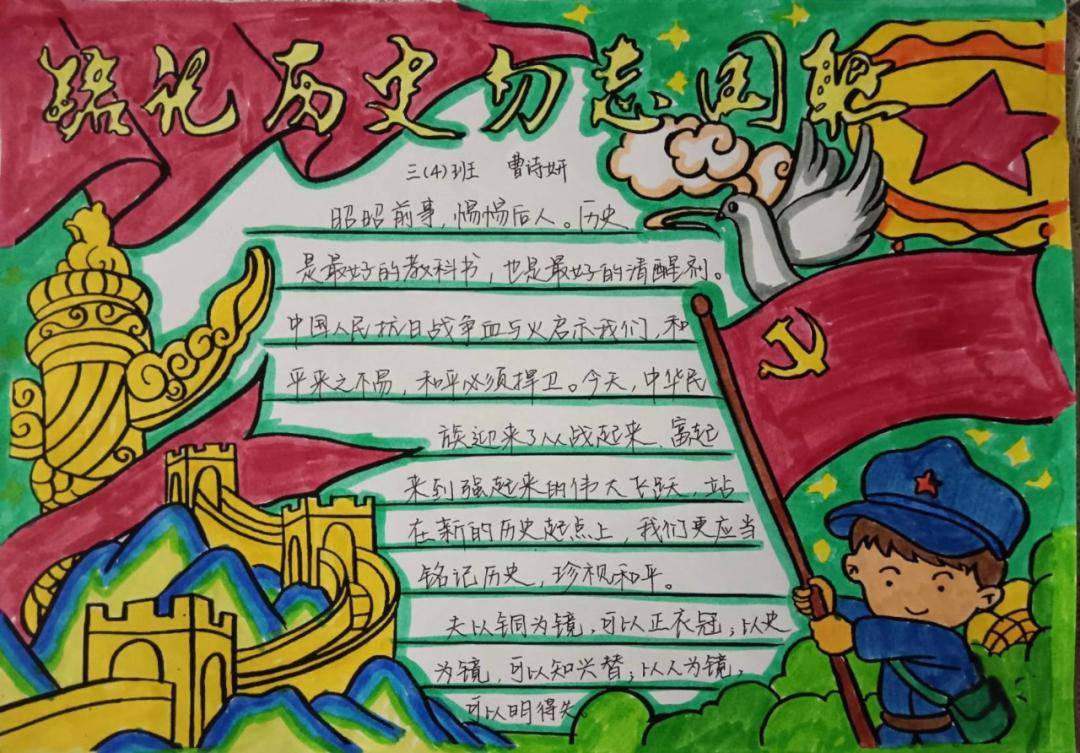 铭记历史勿忘国耻
三(4)班 曹诗妍
昭昭前事,惕惕后人。历史
是最好的教科书,也是最好的清醒剂。
中国人民抗日战争血与火启示我们,和
平来之不易,和平必须捍卫。今天,中华民
族迎来了从战起来 富起
来到强起来的伟大飞跃,站
在新的历史起点上,我们更应当
铭记历史,珍视和平。
夫以铜为镜,可以正衣冠;以史
为镜,可以知兴替;以人为镜,
可以明得失。